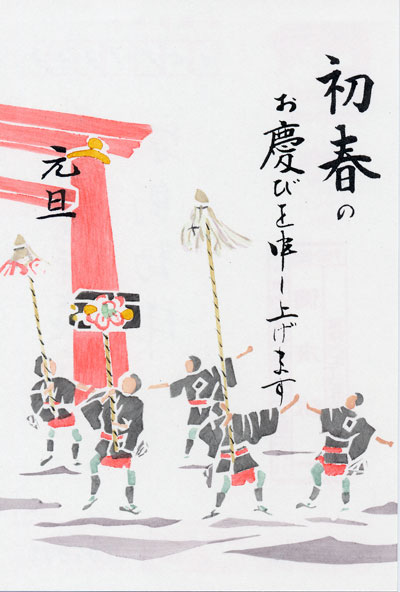 初春の
お慶びを申し上げます
元旦